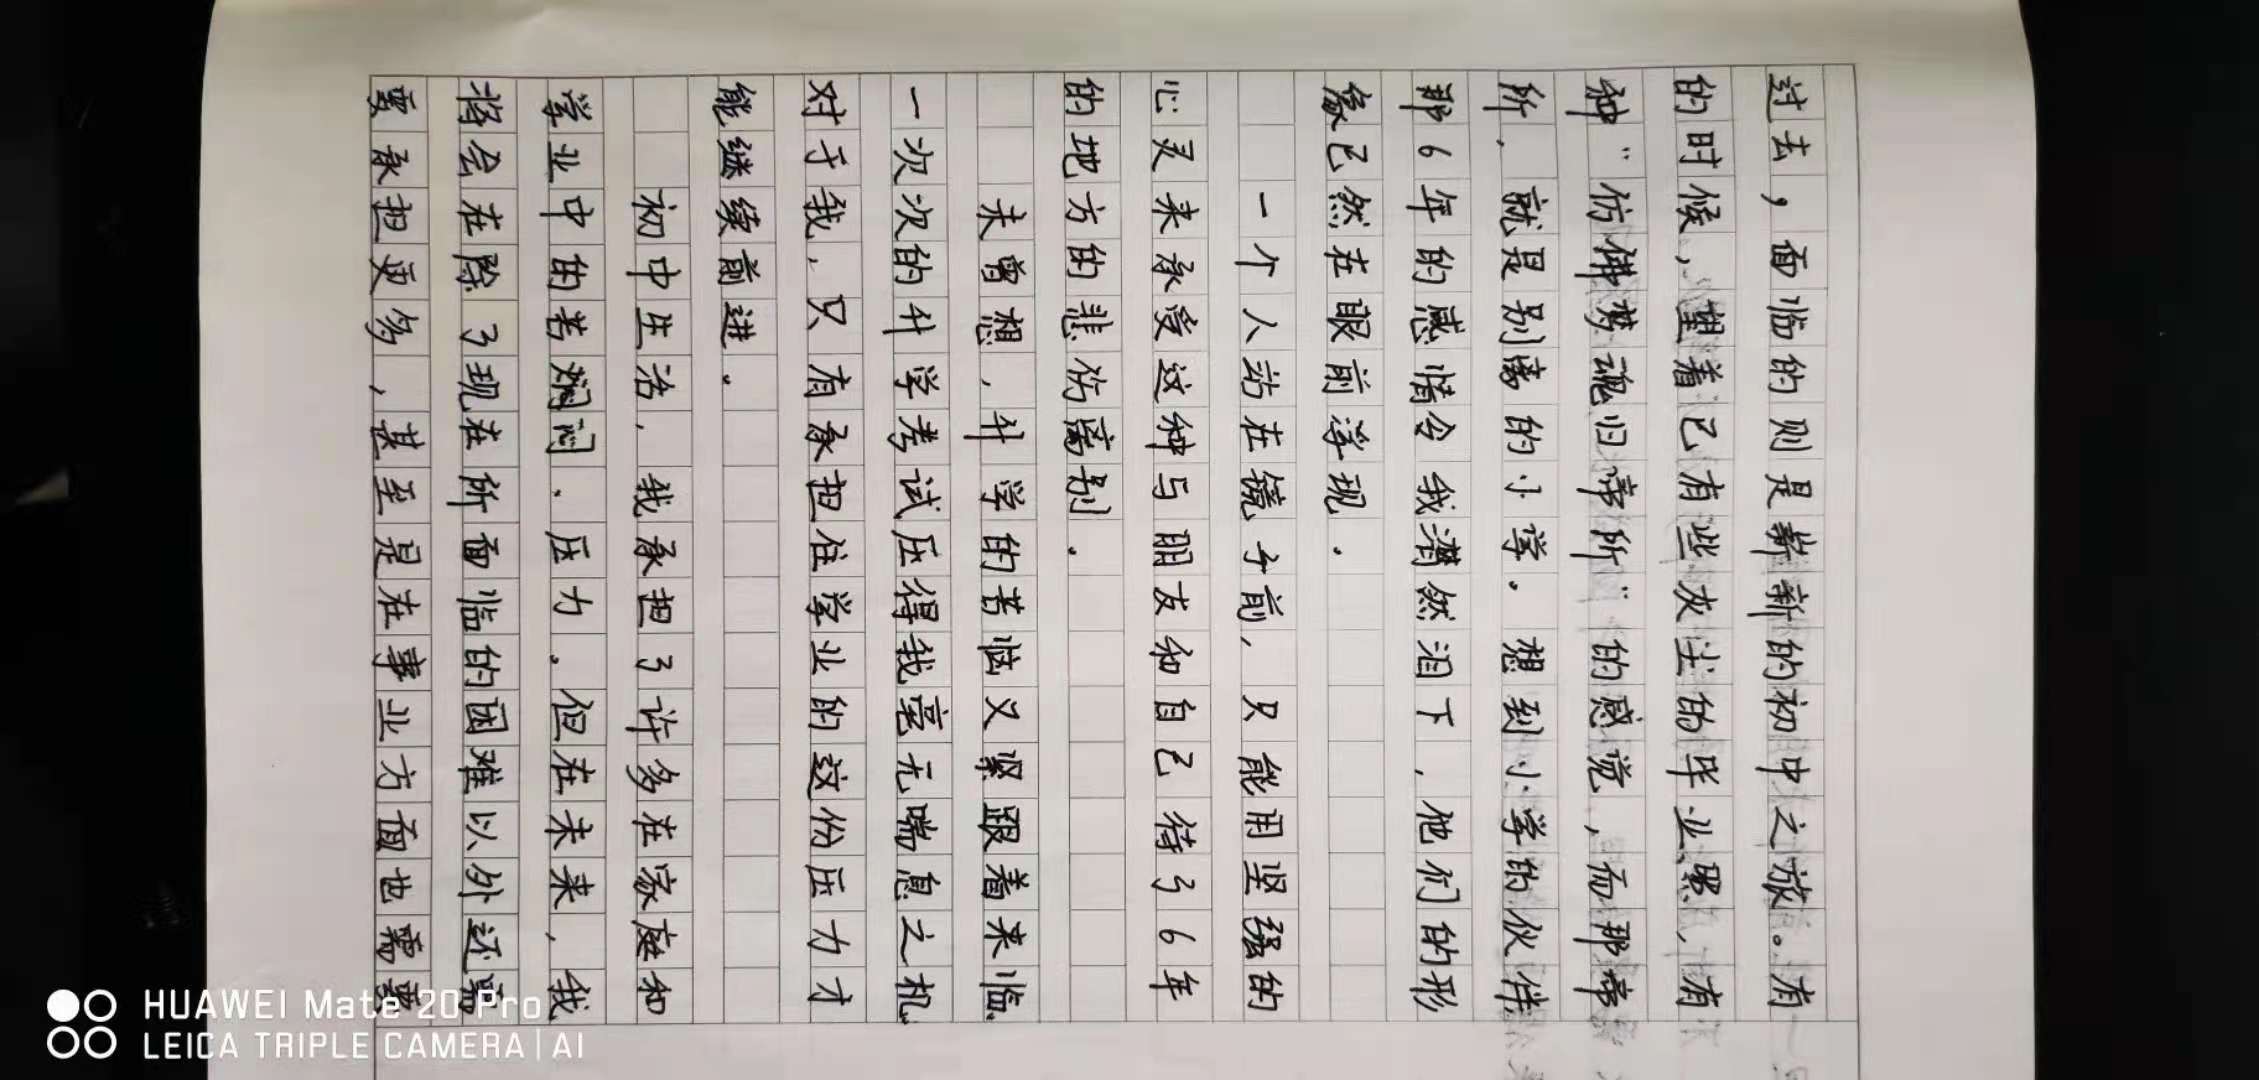 过去，面临的则是崭新的初中之旅。有
的时候，望着已有些灰尘的毕业照，有
种“仿佛梦魂归帝所”的感觉，而那帝
所，就是别离的小学。想到小学的伙伴
那6年的感情令我潸然泪下，他们的形
象已然在眼前浮现．
一个人站在镜子前，只能用坚强的
心灵来承受这种与朋友和自己待了6年
的地方的悲伤离别．
未曾想，升学的苦恼又紧跟着来临．
一次次的升学考试压得我毫无喘息之机．
对于我，只有承担住学业的这份压力才
能继续前进。
初中生活，我承担了许多在家庭和
学业中的苦闷．压力。但在未来，我
将会在除了现在所面临的困难以外还需
要承担更多，甚至是在事业方面也需要
HUAWEI Mate 20 Pro
LEICA TRIPLE CAMERA | AI